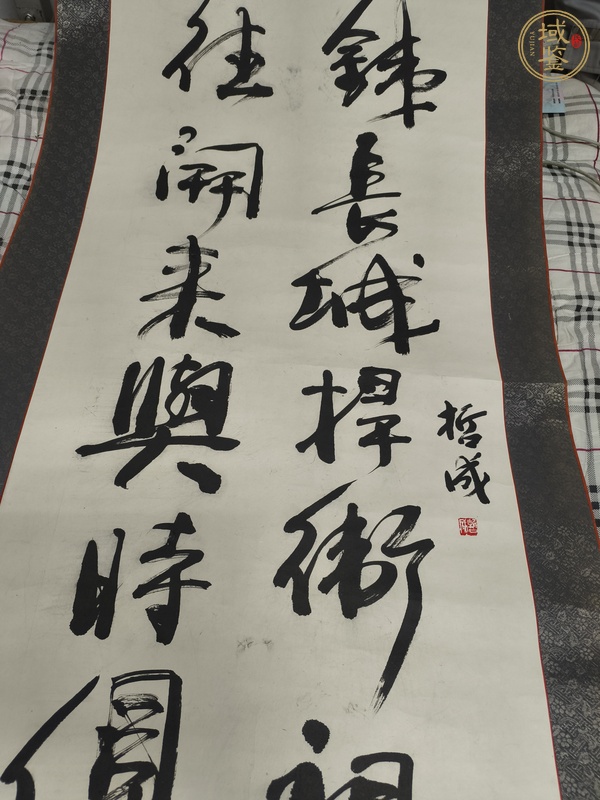 哲成
銕長城捍衛祖
往開来與時俱
域鉴
YUJIAN